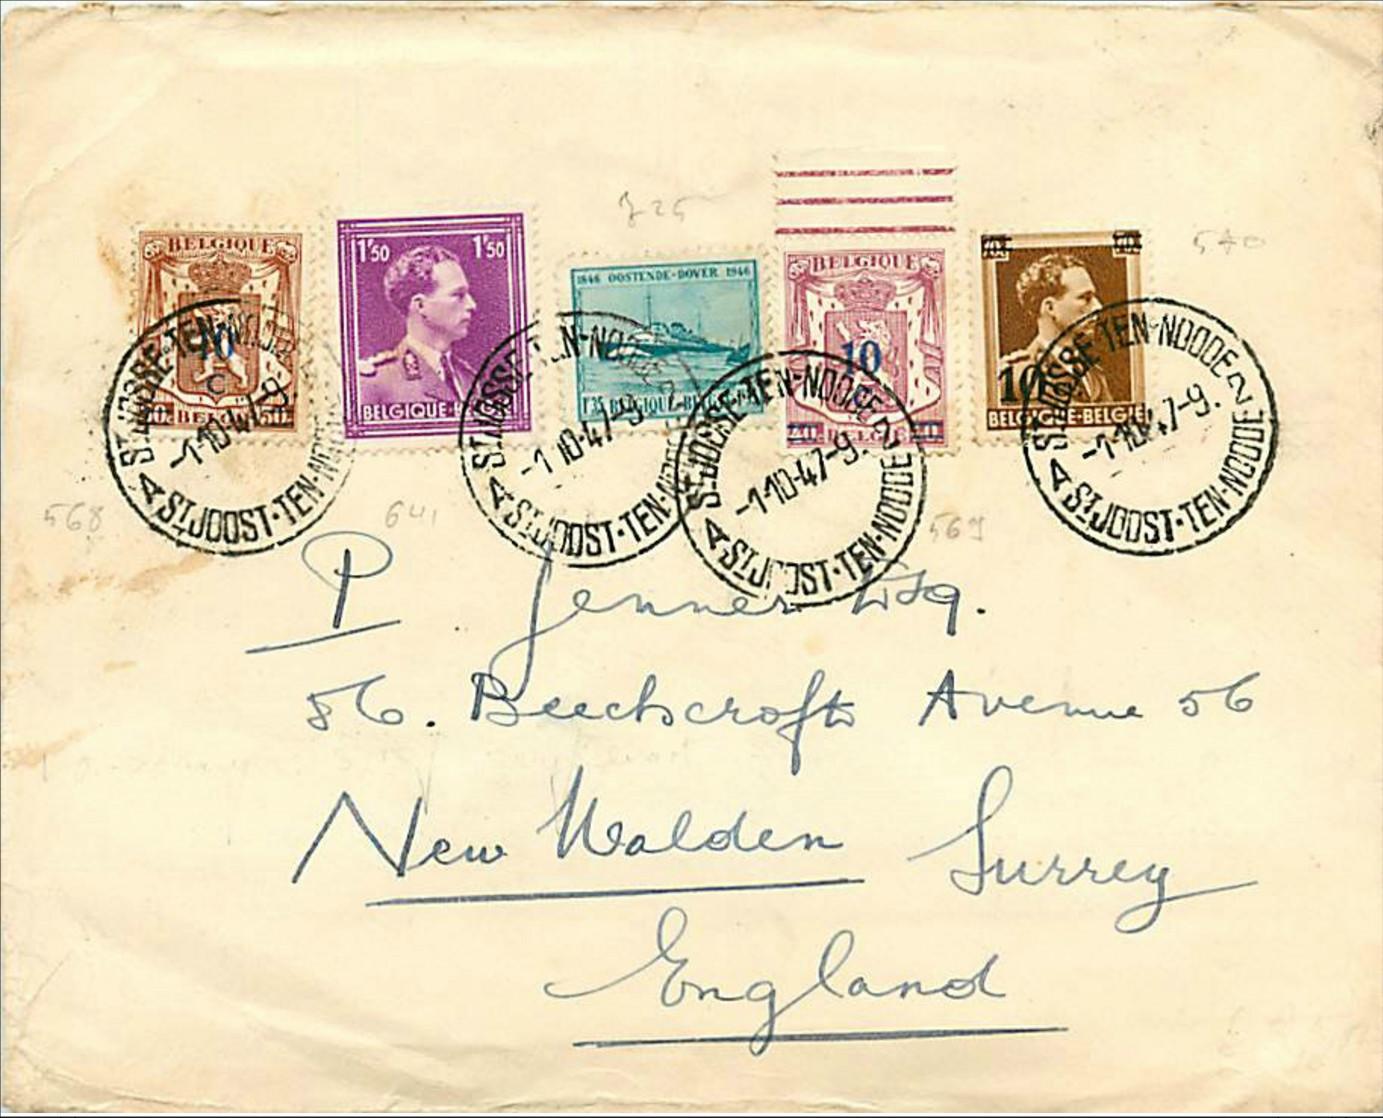 J25
540
BELGIQUE
10
C
BELGIE
1'50 1'50
BELGIQUE
1846 OOSTENDE-DOVER 1946
1'35 BELGIQUE-BE
BELGIQUE
10
BELGIE
10
BELGIQUE-BELGIE
ST.JOSSE-TEN-NOODE
-1-10-47-9
A ST.JOOST-TEN-NOODE
ST.JOSSE-TEN-NOODE 2
-1 10-47-9
A ST.JOOST-TEN-NOODE
ST.JOSSE-TEN-NOODE 2
-1-10-47-9.
A ST.JOOST-TEN-NOODE
ST.JOSSE-TEN-NOODE 2
-1-10-47-9.
A ST.JOOST-TEN-NOODE
568 641 569
P Jenner Esq.
56. Beechcrofts Avenue 56
New Malden Surrey
England